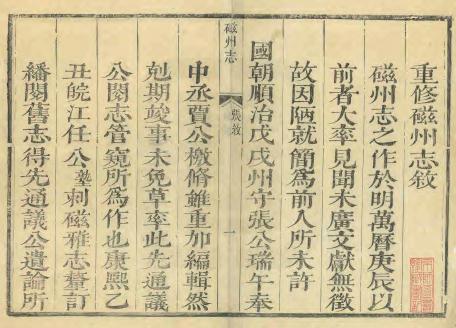 重修磁州志敘
磁州志之作於明萬曆庚辰以
前者大率見聞未廣文獻無徵
故因陋就簡為前人所未許
國朝順治戊戌州守張公瑞午奉
磁州志
張敘
一
中丞賈公檄脩雖重加編輯然
剋期竣事未免草率此先通議
公閱志管窺所為作也康熙乙
丑皖江任公塾刺磁雅志釐訂
繙閱舊志得先通議公遺論所